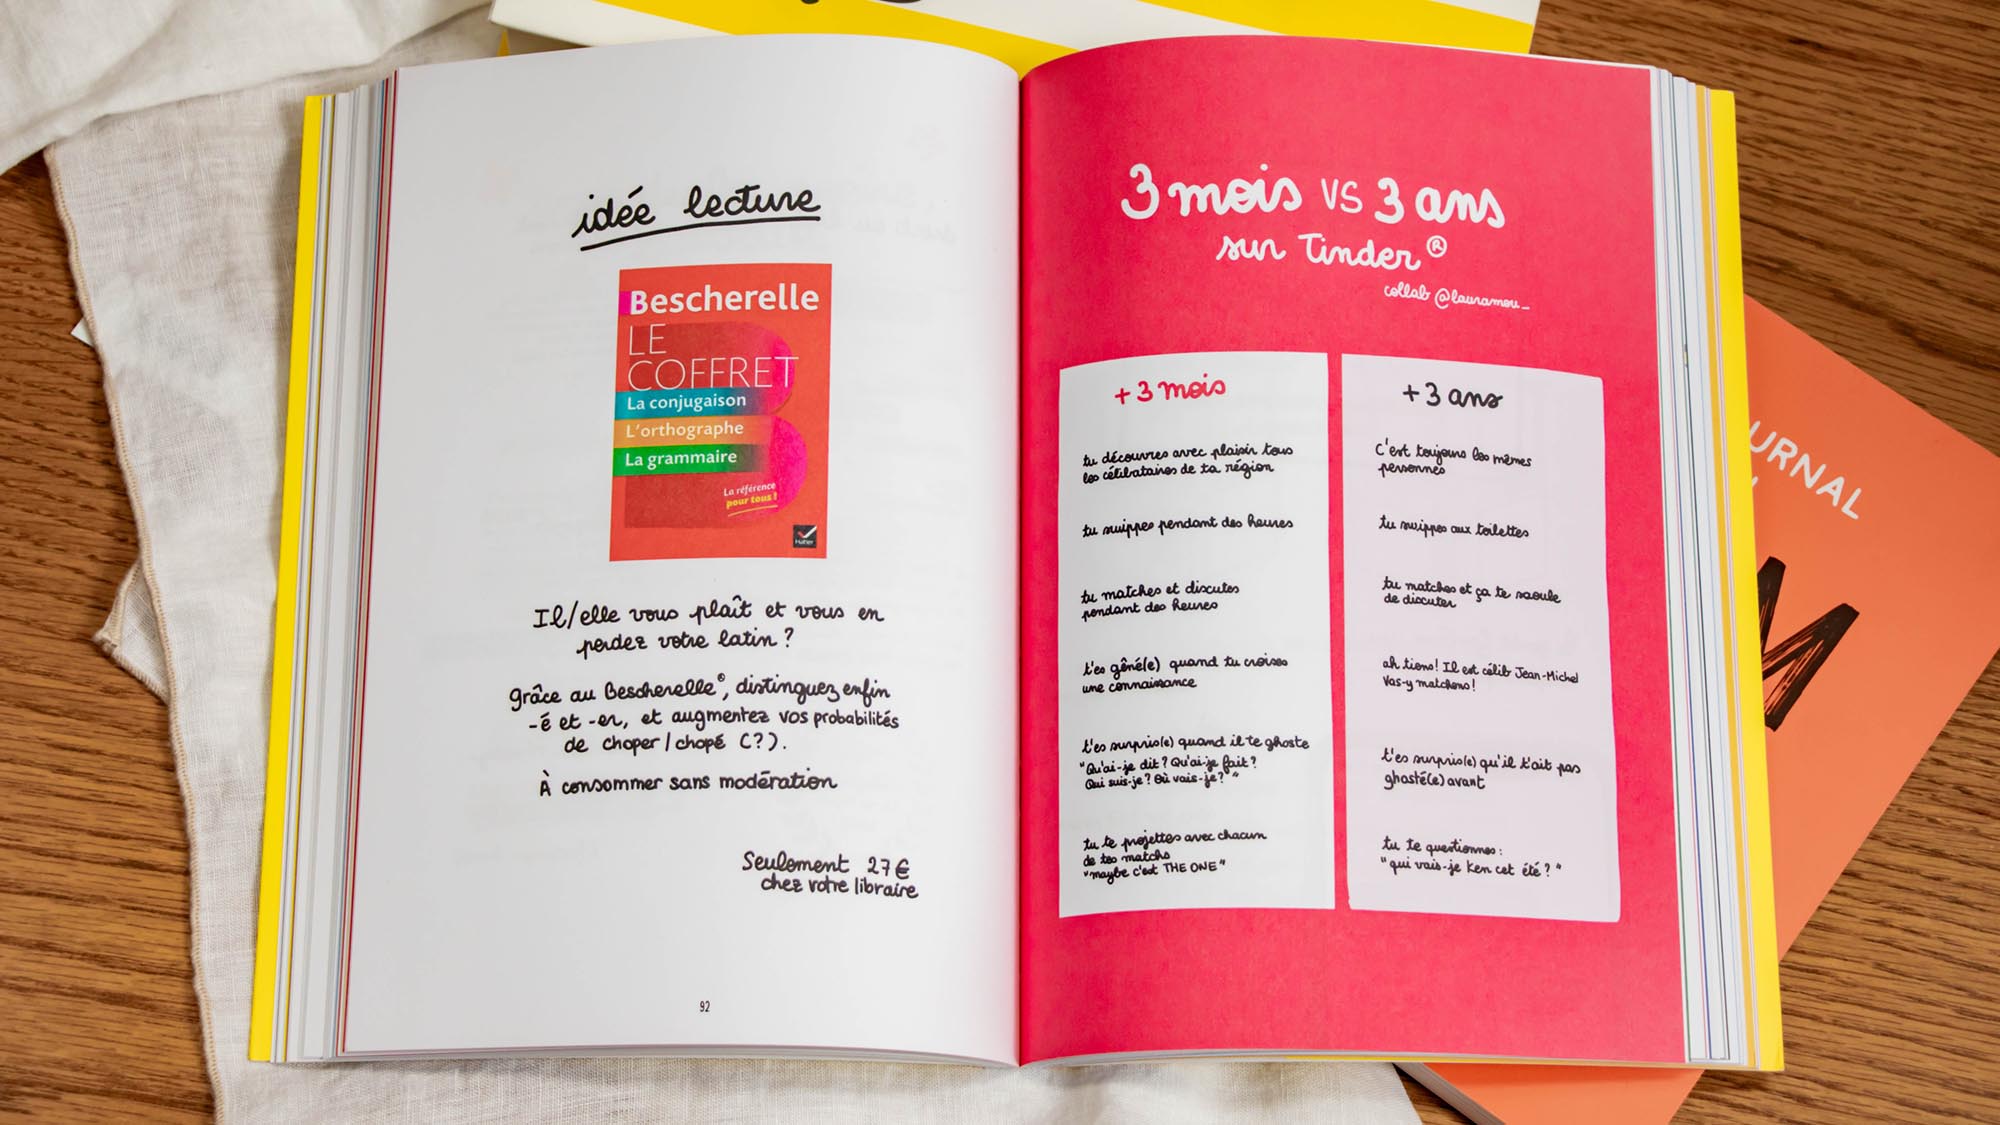 idée lecture
Bescherelle
LE
COFFRET
La conjugaison
L'orthographe
La grammaire
La référence
pour tous !
Hatier
Il/elle vous plaît et vous en
perdez votre latin ?
Grâce au Bescherelle®, distinguez enfin
-é et -er, et augmentez vos probabilités
de choper / chopé (?).
À consommer sans modération
Seulement 27 €
chez votre libraire
92
3 mois VS 3 ans
sur Tinder®
collab @lauramou_
+ 3 mois
tu découvres avec plaisir tous
les célibataires de ta région
tu swippes pendant des heures
tu matches et discutes
pendant des heures
t'es gêné(e) quand tu croises
une connaissance
t'es surpris(e) quand il te ghoste
"Qu'ai-je dit ? Qu'ai-je fait ?
Qui suis-je ? Où vais-je ? "
tu te projettes avec chacun
de tes matchs
"maybe c'est THE ONE"
+ 3 ans
C'est toujours les mêmes
personnes
tu swippes aux toilettes
tu matches et ça te saoule
de discuter
ah tiens ! Il est célib Jean-Michel
Vas-y matchons !
t'es surpris(e) qu'il t'ait pas
ghosté(e) avant
tu te questionnes :
"qui vais-je Ken cet été ? "
URNAL
M